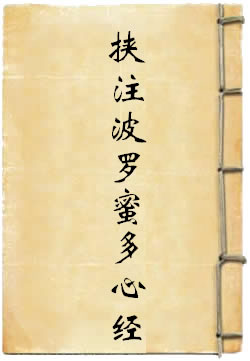 挟注波罗蜜多心经